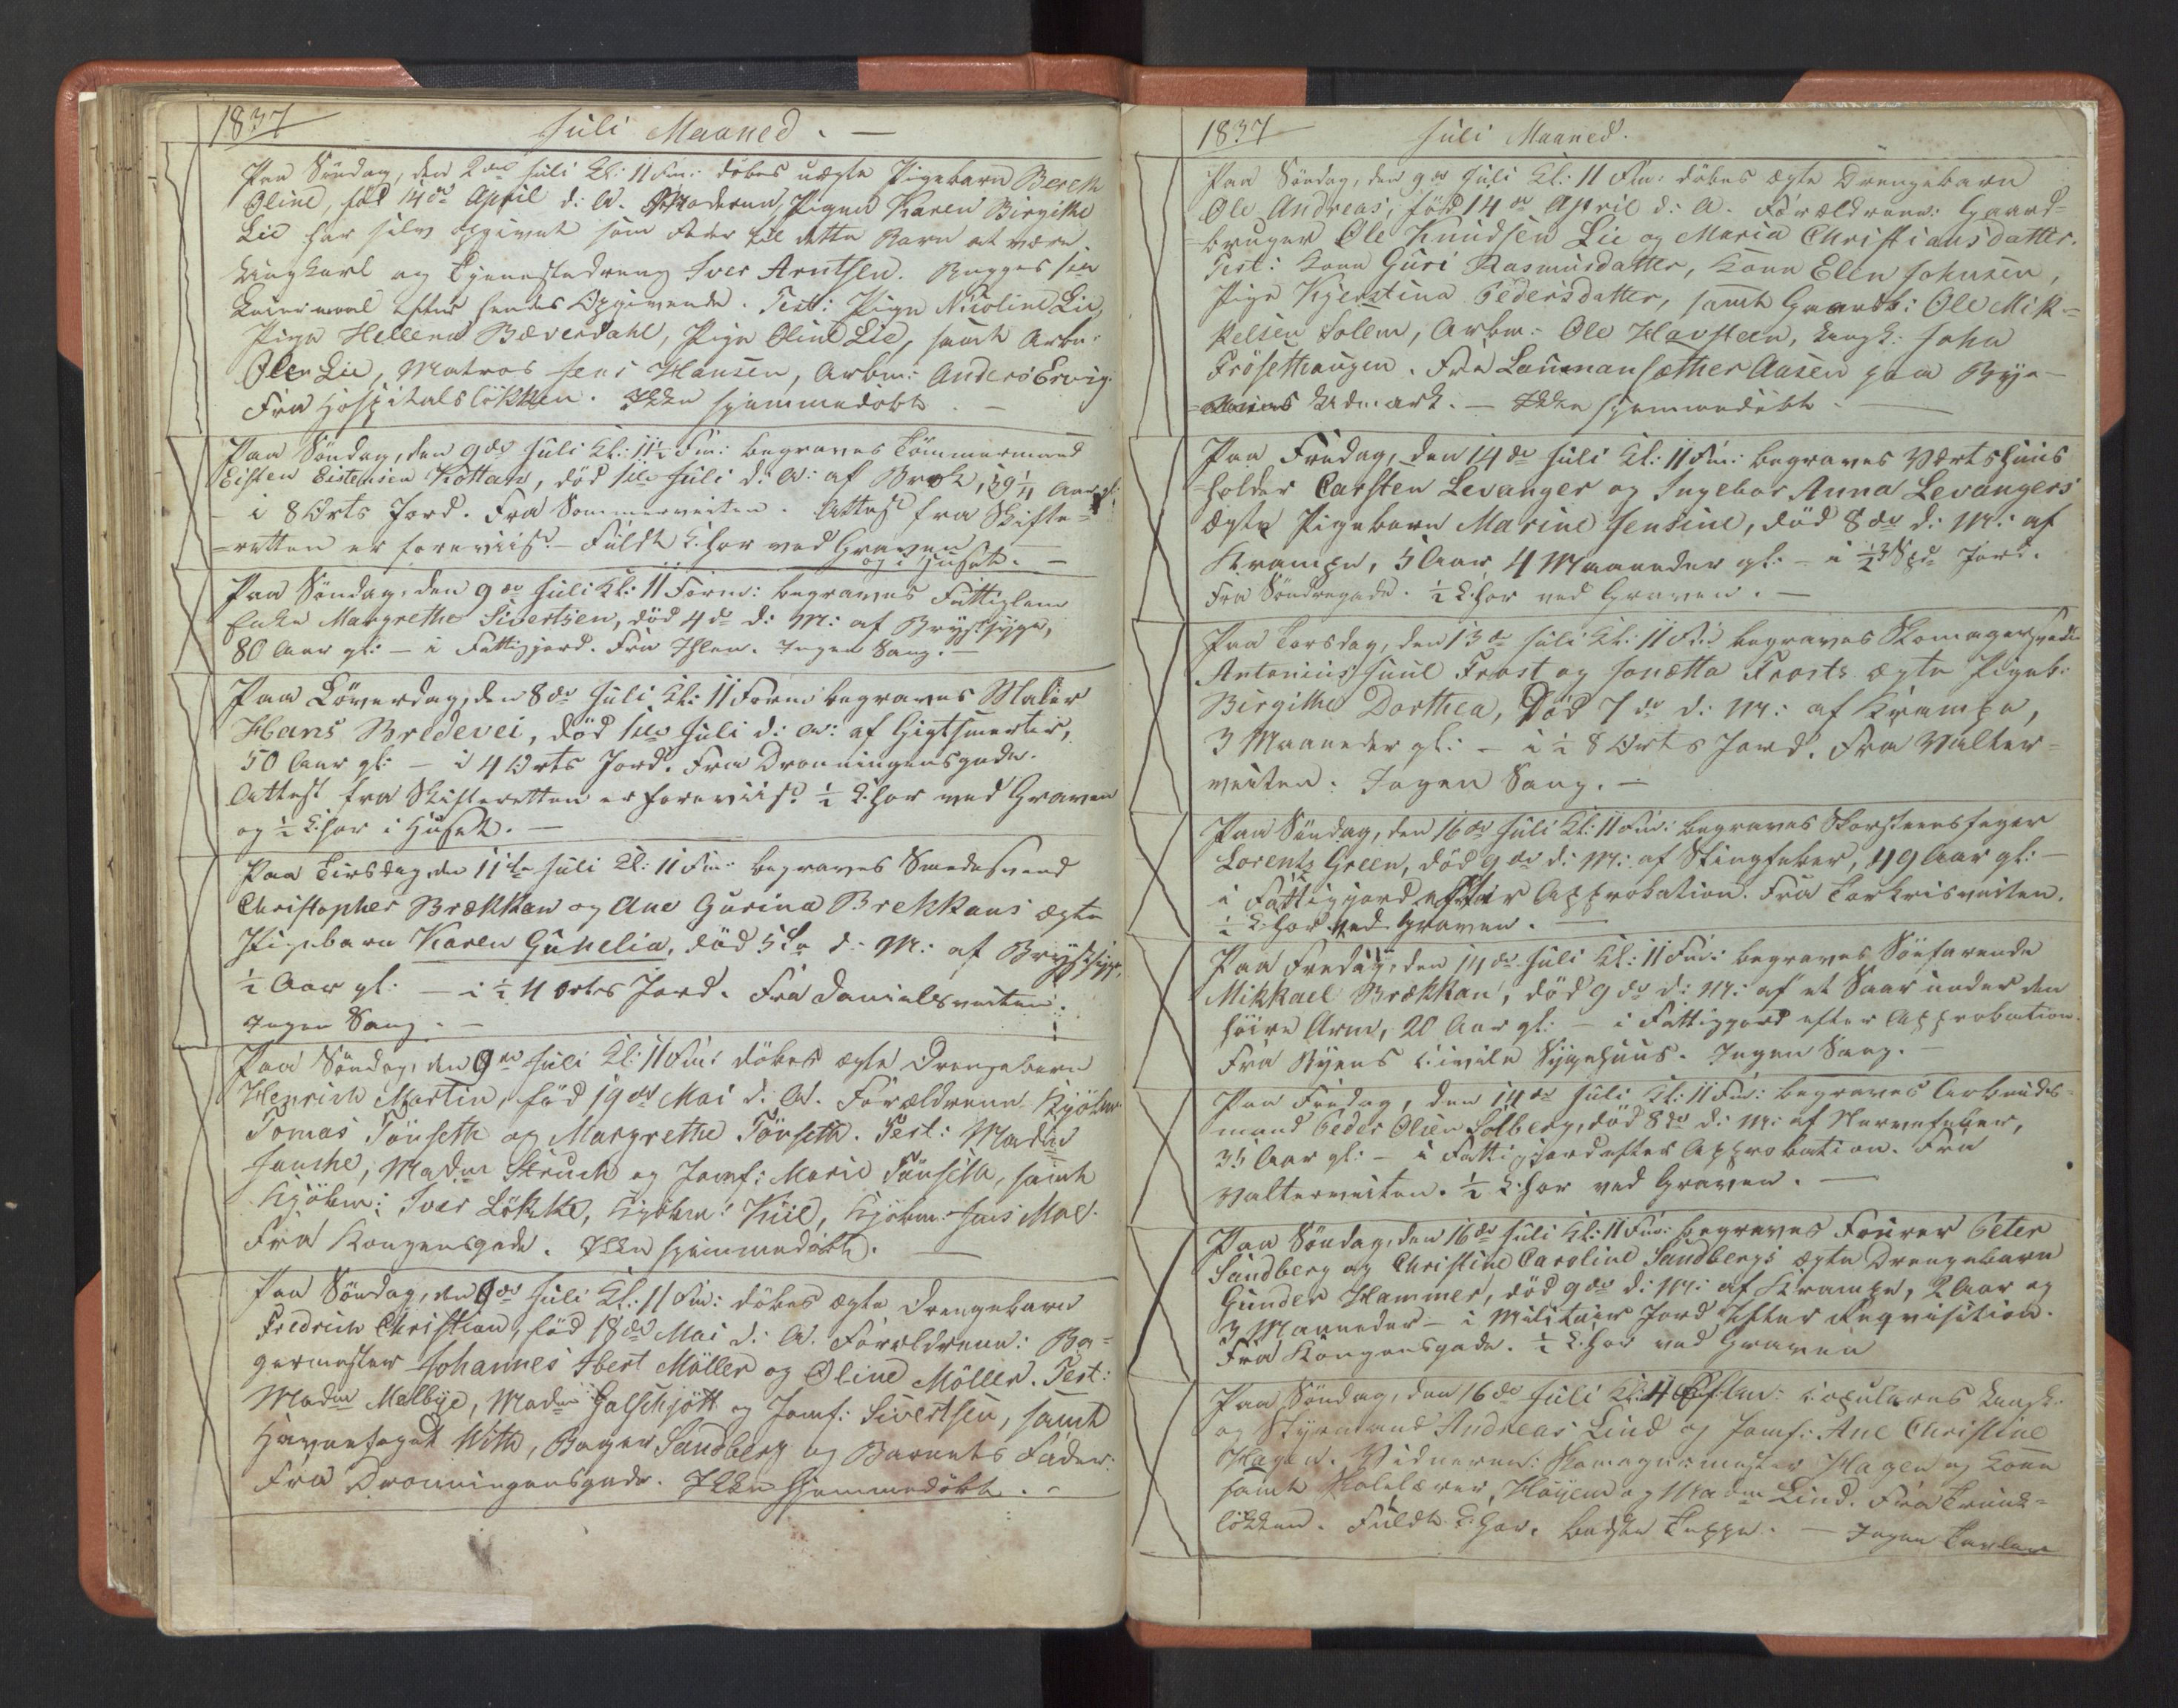 1837
Juli Maaned. —
Paa Søndag, den 2den Juli Kl: 11 Fm: døbes uægte Pigebarn Bereth
Oline, fød 14de April d: A. Moderen, Pigen Karen Birgithe
Lie har selv opgivet som Fader til dette Barn at være
Ungkarl og Tjenestedreng Iver Arntsen. Begges 1ste
Leiermaal efter hendes Opgivende. Test: Pige Nicoline Lie,
Pige Hellena Bæverdahl, Pige Oline Lie, samt Arbm:
Ole Lie, Matros Jens Hansen, Arbm: Anders Ervig.
Fra Hospitalsløkken. Ikke hjemmedøbt. —
Paa Søndag, den 9de Juli Kl: 11½ Fm: begraves Tømmermand
Eisten Eistensen Kottan, død 1ste Juli d: A: af Brok, Aar gl:
— i 8 Orts Jord. Fra Sommerveiten. Attest fra Skifte-
=retten er foreviist. — Fuldt Chor ved Graven
og i Huset. —
Paa Søndag, den 9de Juli Kl: 11 Form: begraves Fattiglem
Enke Margrethe Sivertsen, død 4de d: M: af Brystsyge,
80 Aar gl: — i Fattigjord. Fra Ihlen. Ingen Sang. —
Paa Løverdag, den 8de Juli Kl: 11 Form: begraves Maler
Hans Bredevei, død 1ste Juli d: A: af Gigtsmerter,
50 Aar gl: — i 4 Orts Jord. Fra Dronningensgade.
Attest fra Skifteretten er foreviist ½ Chor ved Graven
og ½ Chor i Huset. —
Paa Tirsdag, den 11te Juli Kl: 11 Fm: begraves Smedesvend
Christopher Brækkan og Ane Gurina Brekkans ægte
Pigebarn Karen Gunelia, død 5te d: M: af Brystsyge,
½ Aar gl: — i ½ 4 Orts Jord. Fra Danielsveiten.
Ingen Sang. —
Paa Søndag, den 9de Juli Kl: 11 Fm: døbes ægte Drengebarn
Henrich Martin, fød 19de Mai d: A. Forældrene Kjøbm:
Tomas Tønseth og Margrethe Tønseth. Test: Madm
Jenche, Madm Struch og Jomf: Marie Tønseth, samt
Kjøbm: Iver Løkke, Kjøbm: Kiil, Kjøbm: Jens Moe.
Fra Kongensgade. Ikke hjemmedøbt. —
Paa Søndag, den 9de Juli Kl: 11 Fm: døbes ægte Drengebarn
Fredrich Christian, fød 18de Mai d: A. Forældrene: Ba-
germester Johannes Ibert Møller og Oline Møller. Test:
Madm Melbye, Madm Galschjøtt og Jomf: Sivertsen, samt
Havnefoged With, Bager Sandberg og Barnets Fader.
Fra Dronningensgade. Ikke hjemmedøbt. —
1837
Juli Maaned.
Paa Søndag, den 9de Juli Kl: 11 Fm: døbes ægte Drengebarn
Ole Andreas, fød 14de April d: A. Forældrene: Gaard-
=bruger Ole Knudsen Lie og Maria Christiansdatter.
Test: Kone Guri Rasmusdatter, Kone Elen Johnsen,
Pige Kjerstina Pedersdatter, samt Gaardb: Ole Mik-
kelsen Solem, Arbm: Ole Havsteen, Ungk: John
Frøsethaugen. Fra Laumansæther Aasen paa Bye-
=Udmark. — Ikke hjemmedøbt. —
Paa Fredag, den 14de Juli Kl: 11 Fm: begraves Vertshuus
=holder Carsten Levanger og Ingebor Anna Levangers
ægte Pigebarn Marine Jensine, død 8de d: M: af
Krampe, 5 Aar, 4 Maaneder gl: — i ½ 3 Spd Jord.
Fra Søndregade. ½ Chor ved Graven. —
Paa Torsdag, den 13de Juli Kl: 11 Fm: begraves Skomagersvend
Antonius Juul Frost og Jonetta Frosts ægte Pigeb:
Birgithe Dorthea, død 7de d: M: af Krampe,
3 Maaneder gl: — i ½ 8 Orts Jord. Fra Valter=
veiten. Ingen Sang. —
Paa Søndag, den 16de Juli Kl: 11 Fm: begraves Skorsteensfeger
Lorentz Green, død 9de d: M: af Stingfeber, 49 Aar gl: —
i Fattigjord efter Approbation. Fra Torkrisveiten.
½ Chor ved Graven. —
Paa Fredag, den 14de Juli Kl: 11 Fm: begraves Søefarende
Mikkael Brækkan, død 9de d: M: af et Saar under den
høire Arm, 20 Aar gl: — i Fattigjord efter Approbation.
Fra Byens Civile Sygehuus. Ingen Sang. —
Paa Fredag, den 14de Juli Kl: 11 Fm: begraves Arbeids-
mand Peder Olsen Solberg, død 8de d: M: af Nervefeber,
35 Aar gl: — i Fattigjord efter Approbation. Fra
Valterveiten. ½ Chor ved Graven. —
Paa Søndag, den 16de Juli Kl: 11 Fm: begraves Fourer Peter
Sandberg og Christine Caroline Sandbergs ægte Drengebarn
Gunder Hammer, død 9de d: M: af Krampe, 2 Aar og
3 Maaneder — i Militair Jord efter Reqvisition.
Fra Kongensgade. ½ Chor ved Graven
Paa Søndag, den 16de Juli Kl: 4 Eftm: copuleres Ungk:
og Styrmand Andreas Lind og Jomf: Ane Christine
Hagen. Vidnerne: Skomagermester Hagen og Kone
samt Skolelærer Høyem og Madm Lind. Fra
løkken. Fuldt Chor. bedste Teppe. — Ingen Tavlen